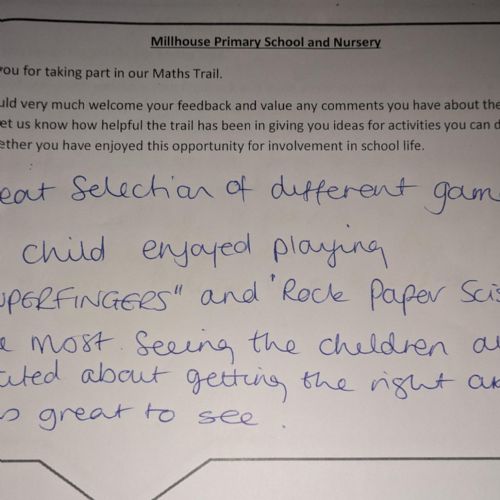 Millhouse Primary School and Nursery
you for taking part in our Maths Trail.
uld very much welcome your feedback and value any comments you have about the
et us know how helpful the trail has been in giving you ideas for activities you can d
ether you have enjoyed this opportunity for involvement in school life.
eat Selection of different gam
child enjoyed playing
UPERFINGERS" and "Rock Paper Scis
e most. Seeing the children a
ited about getting the right a
s great to see.